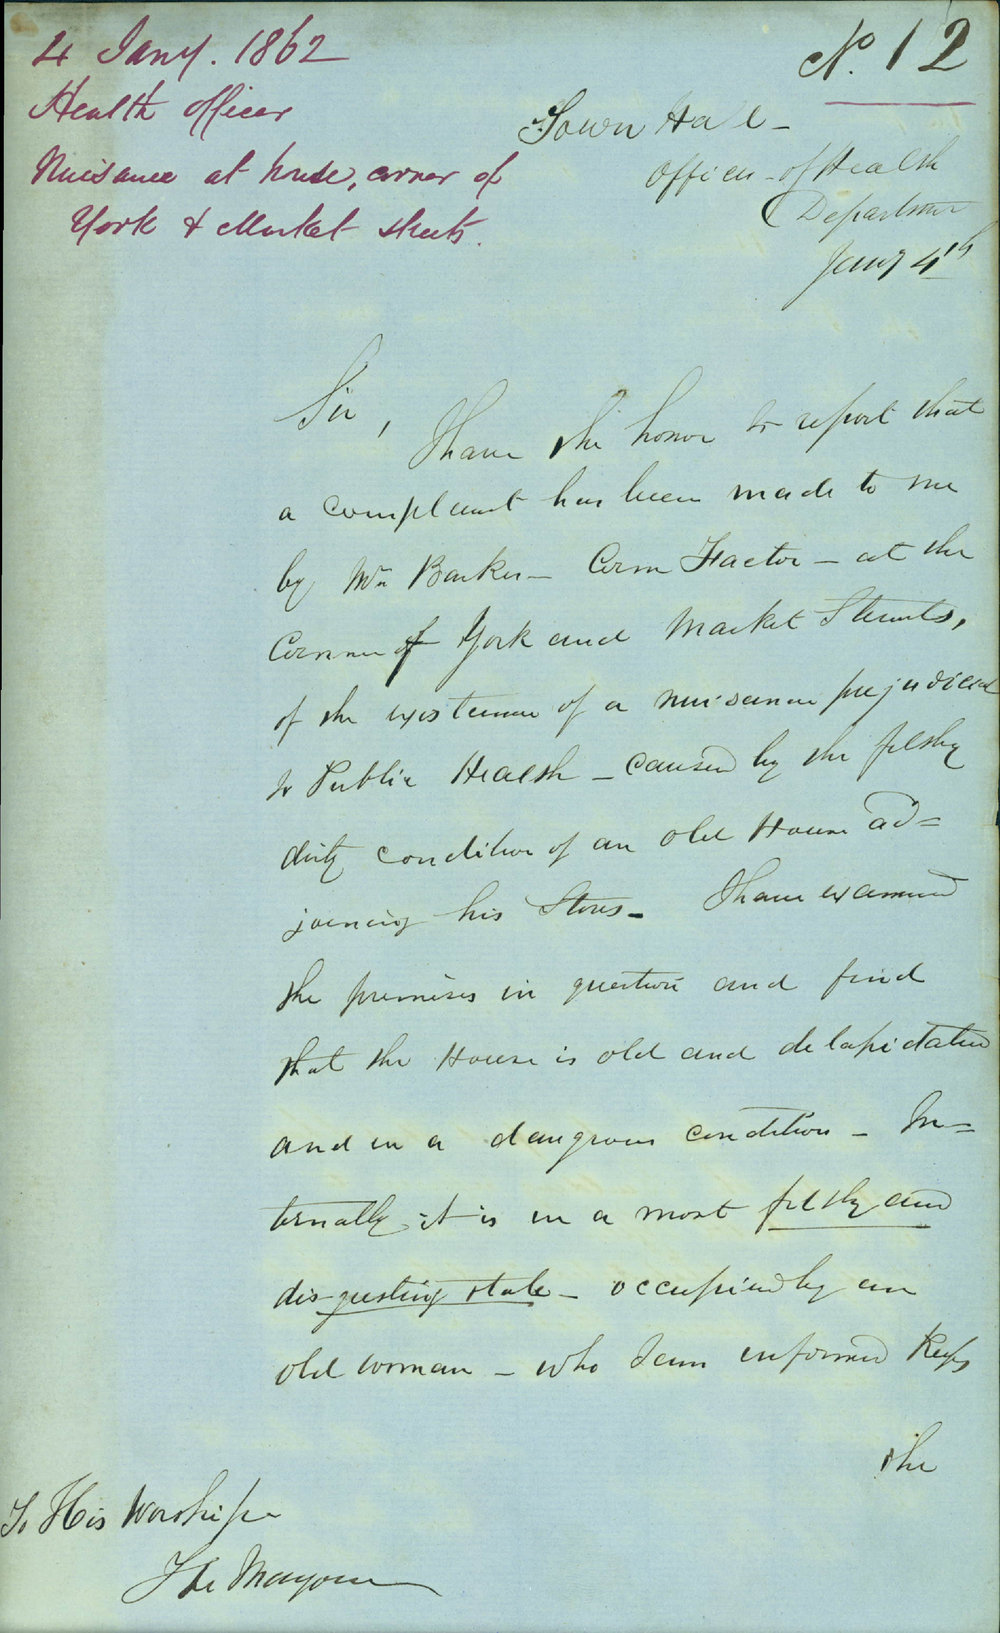 4 Jany. 1862
Health officer
Nuisance at house, corner of
York & Market streets.
No. 12
Town Hall -
Office - of Health
Department
Jany 4th
Sir,
I have the honor to report that
a complaint has been made to me
by Mr Barker - Corn Factor - at the
Corner of York and Market Streets,
of the existence of a nuisance prejudicial
to Public Health - caused by the filthy
dirty condition of an old House ad=
joining his Stores - I have examined
the premises in question and find
that the House is old and delapidated
and in a dangerous condition - In=
ternally it is in a most filthy and
disgusting state - occupied by an
old woman - who I am informed Keeps
the
To His Worship
The Mayor